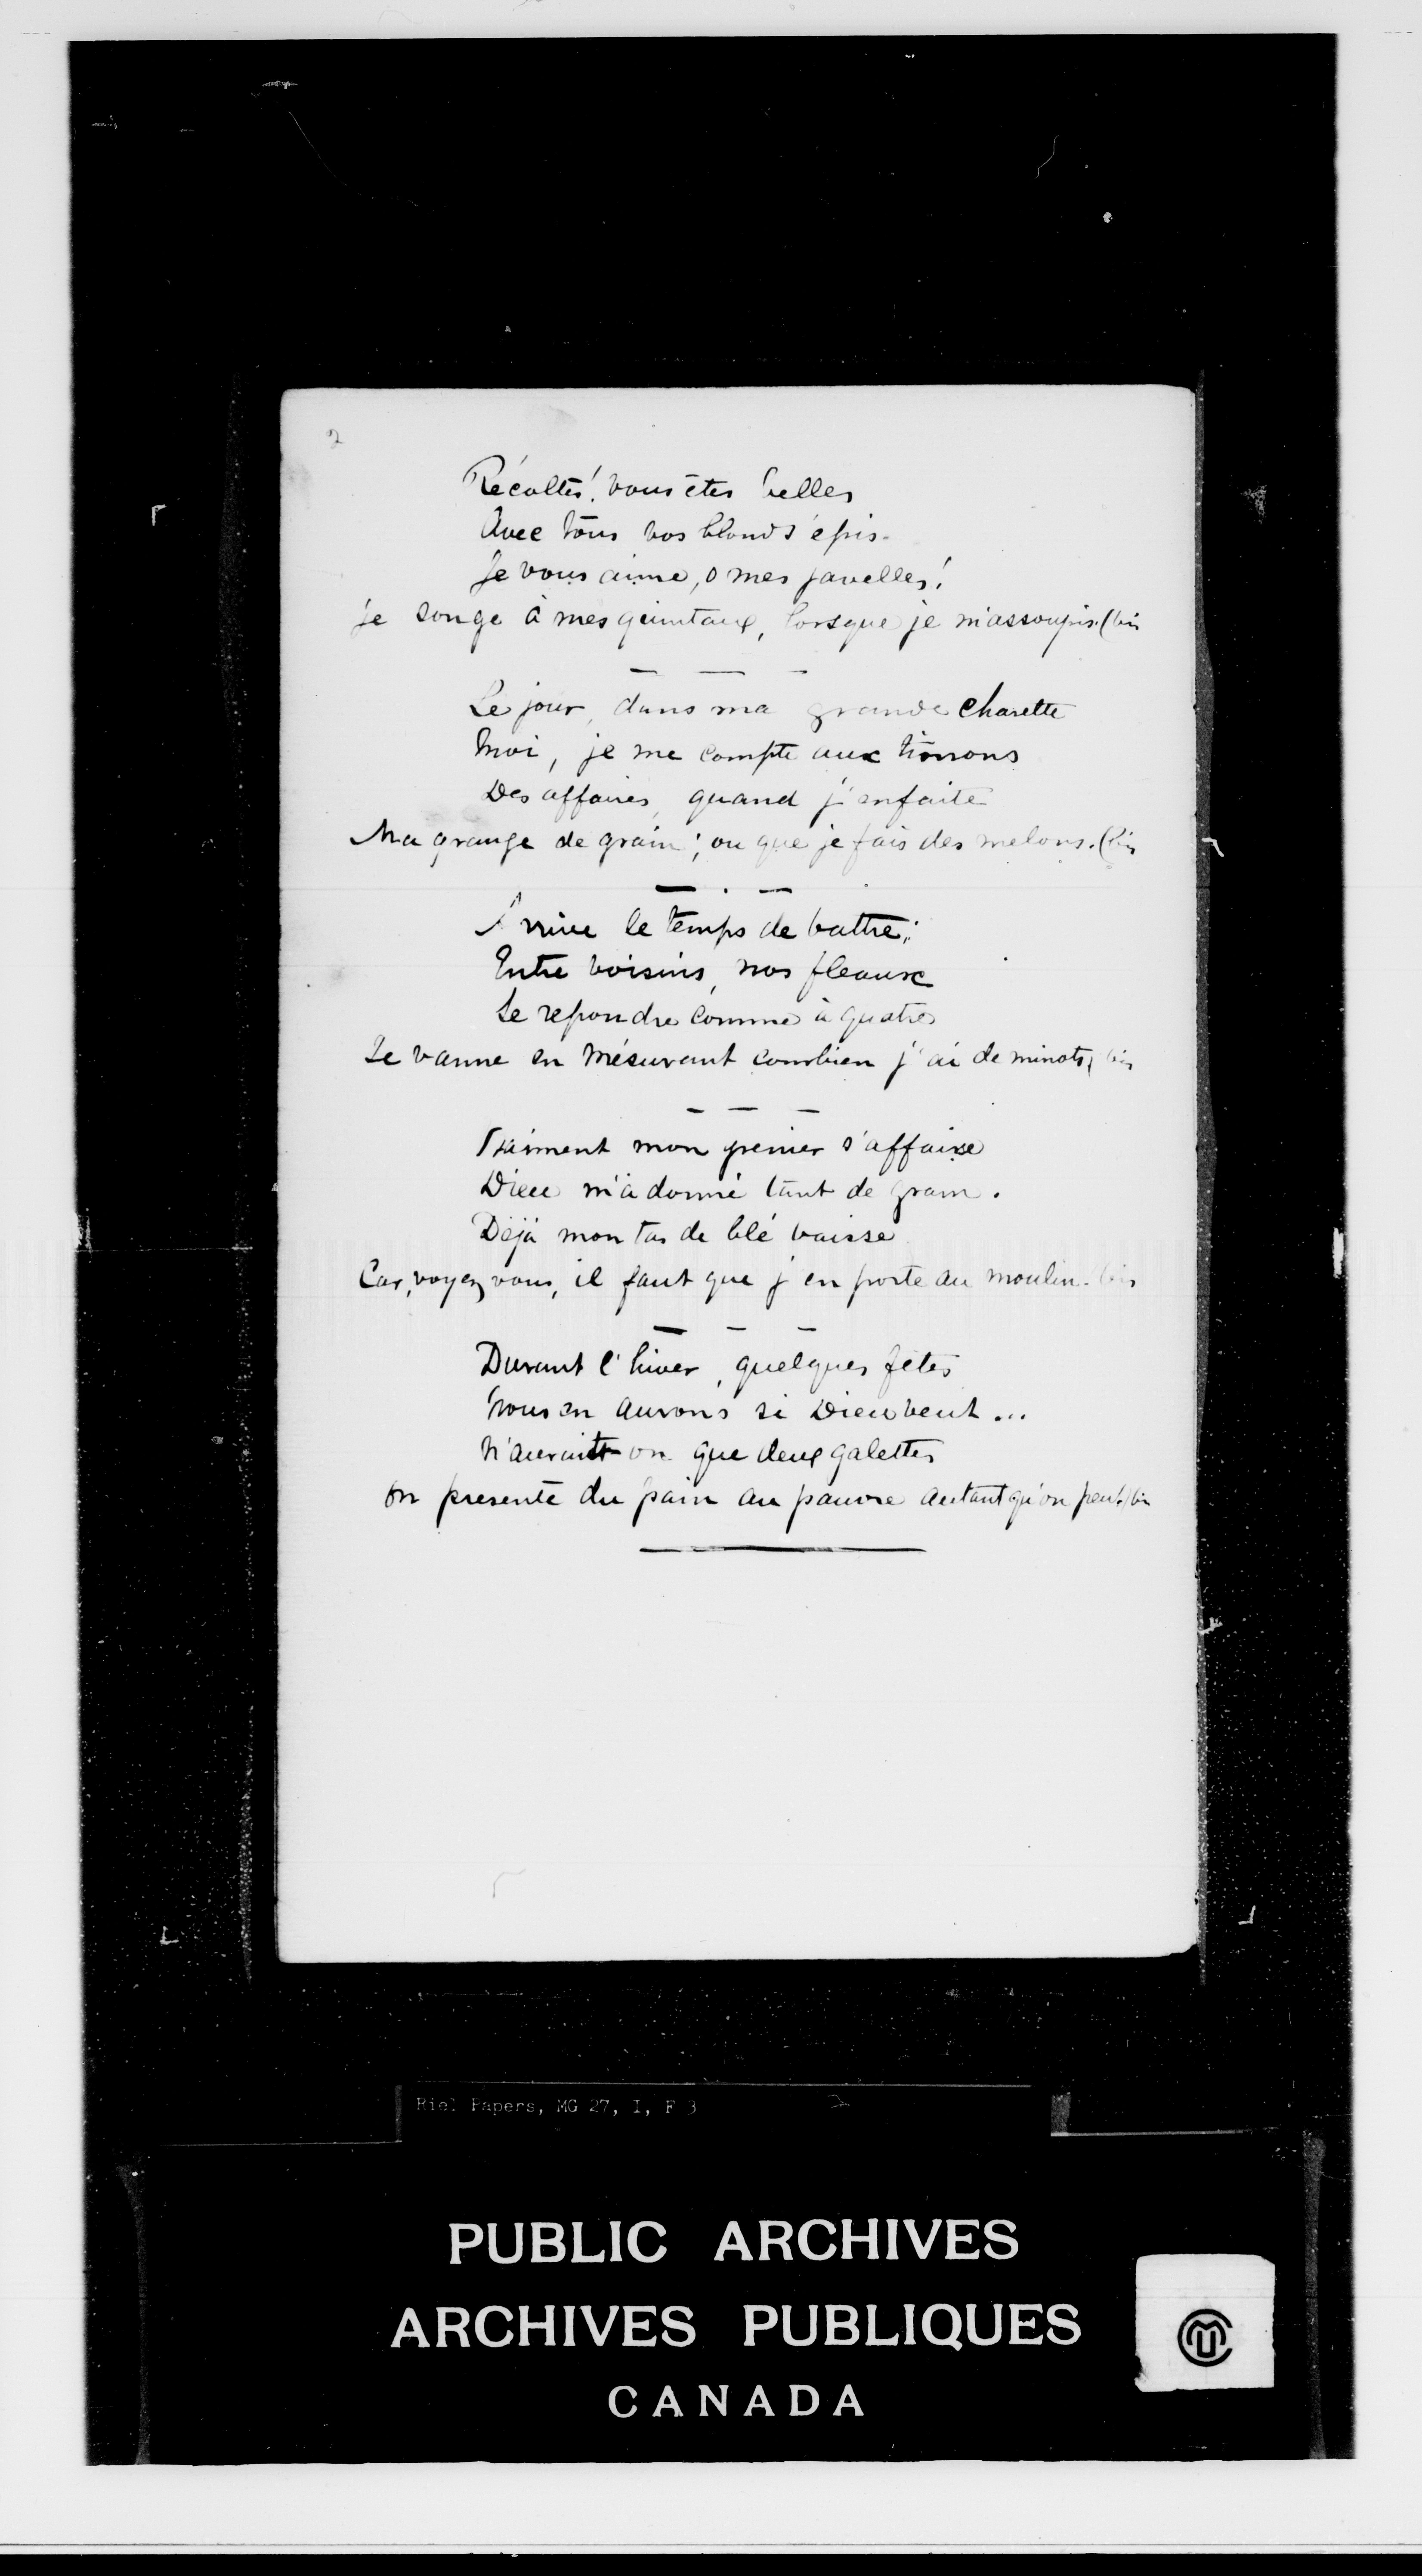 2
Récoltes! vous êtes belles
Avec tous vos blonds épis.
Je vous aime, o mes javelles!
Je songe à mes quintaux, lorsque je m'assoupis. (bis
Le jour, dans ma grande charette
Moi, je me compte aux timons
Des affaires, quand j'enfaite
Ma grange de grain; ou que je fais des melons. (bis
Arrive le temps de battre;
Entre voisins, nos fleaux
Se repondre comme à quatre
Je vanne en mésurant combien j'ai de minots (bis
Vraiment mon grenier s'affaise
Dieu m'a donné tant de grain.
Déjà mon tas de blé baisse
Car, voyez vous, il faut que j'en porte au moulin. (bis
Durant l'hiver, quelques fêtes
Nous en aurons si Dieu veut...
N'aurait-on que deux galettes
On presente du pain au pauvre autant qu'on peut. (bis
Riel Papers, MG 27, I, F 3
2
PUBLIC ARCHIVES
ARCHIVES PUBLIQUES
CANADA